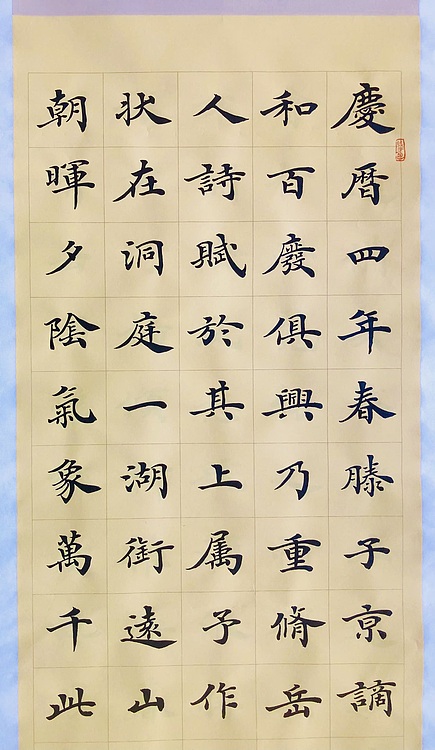 慶曆四年春滕子京謫
和百廢俱興乃重脩岳
人詩賦於其上属予作
状在洞庭一湖銜遠山
朝暉夕陰氣象萬千此